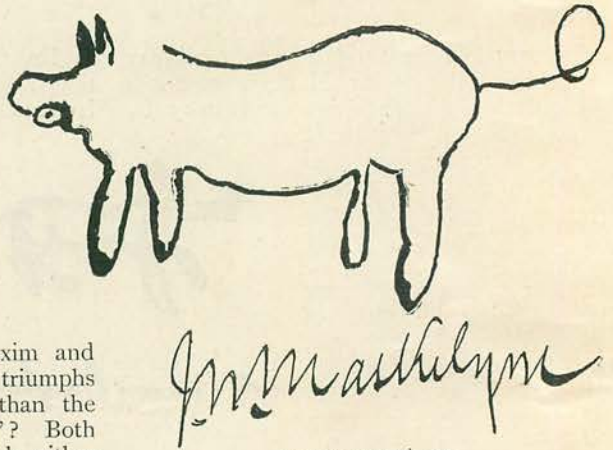 xim and
triumphs
than the
’? Both
J.N.Maskelyne